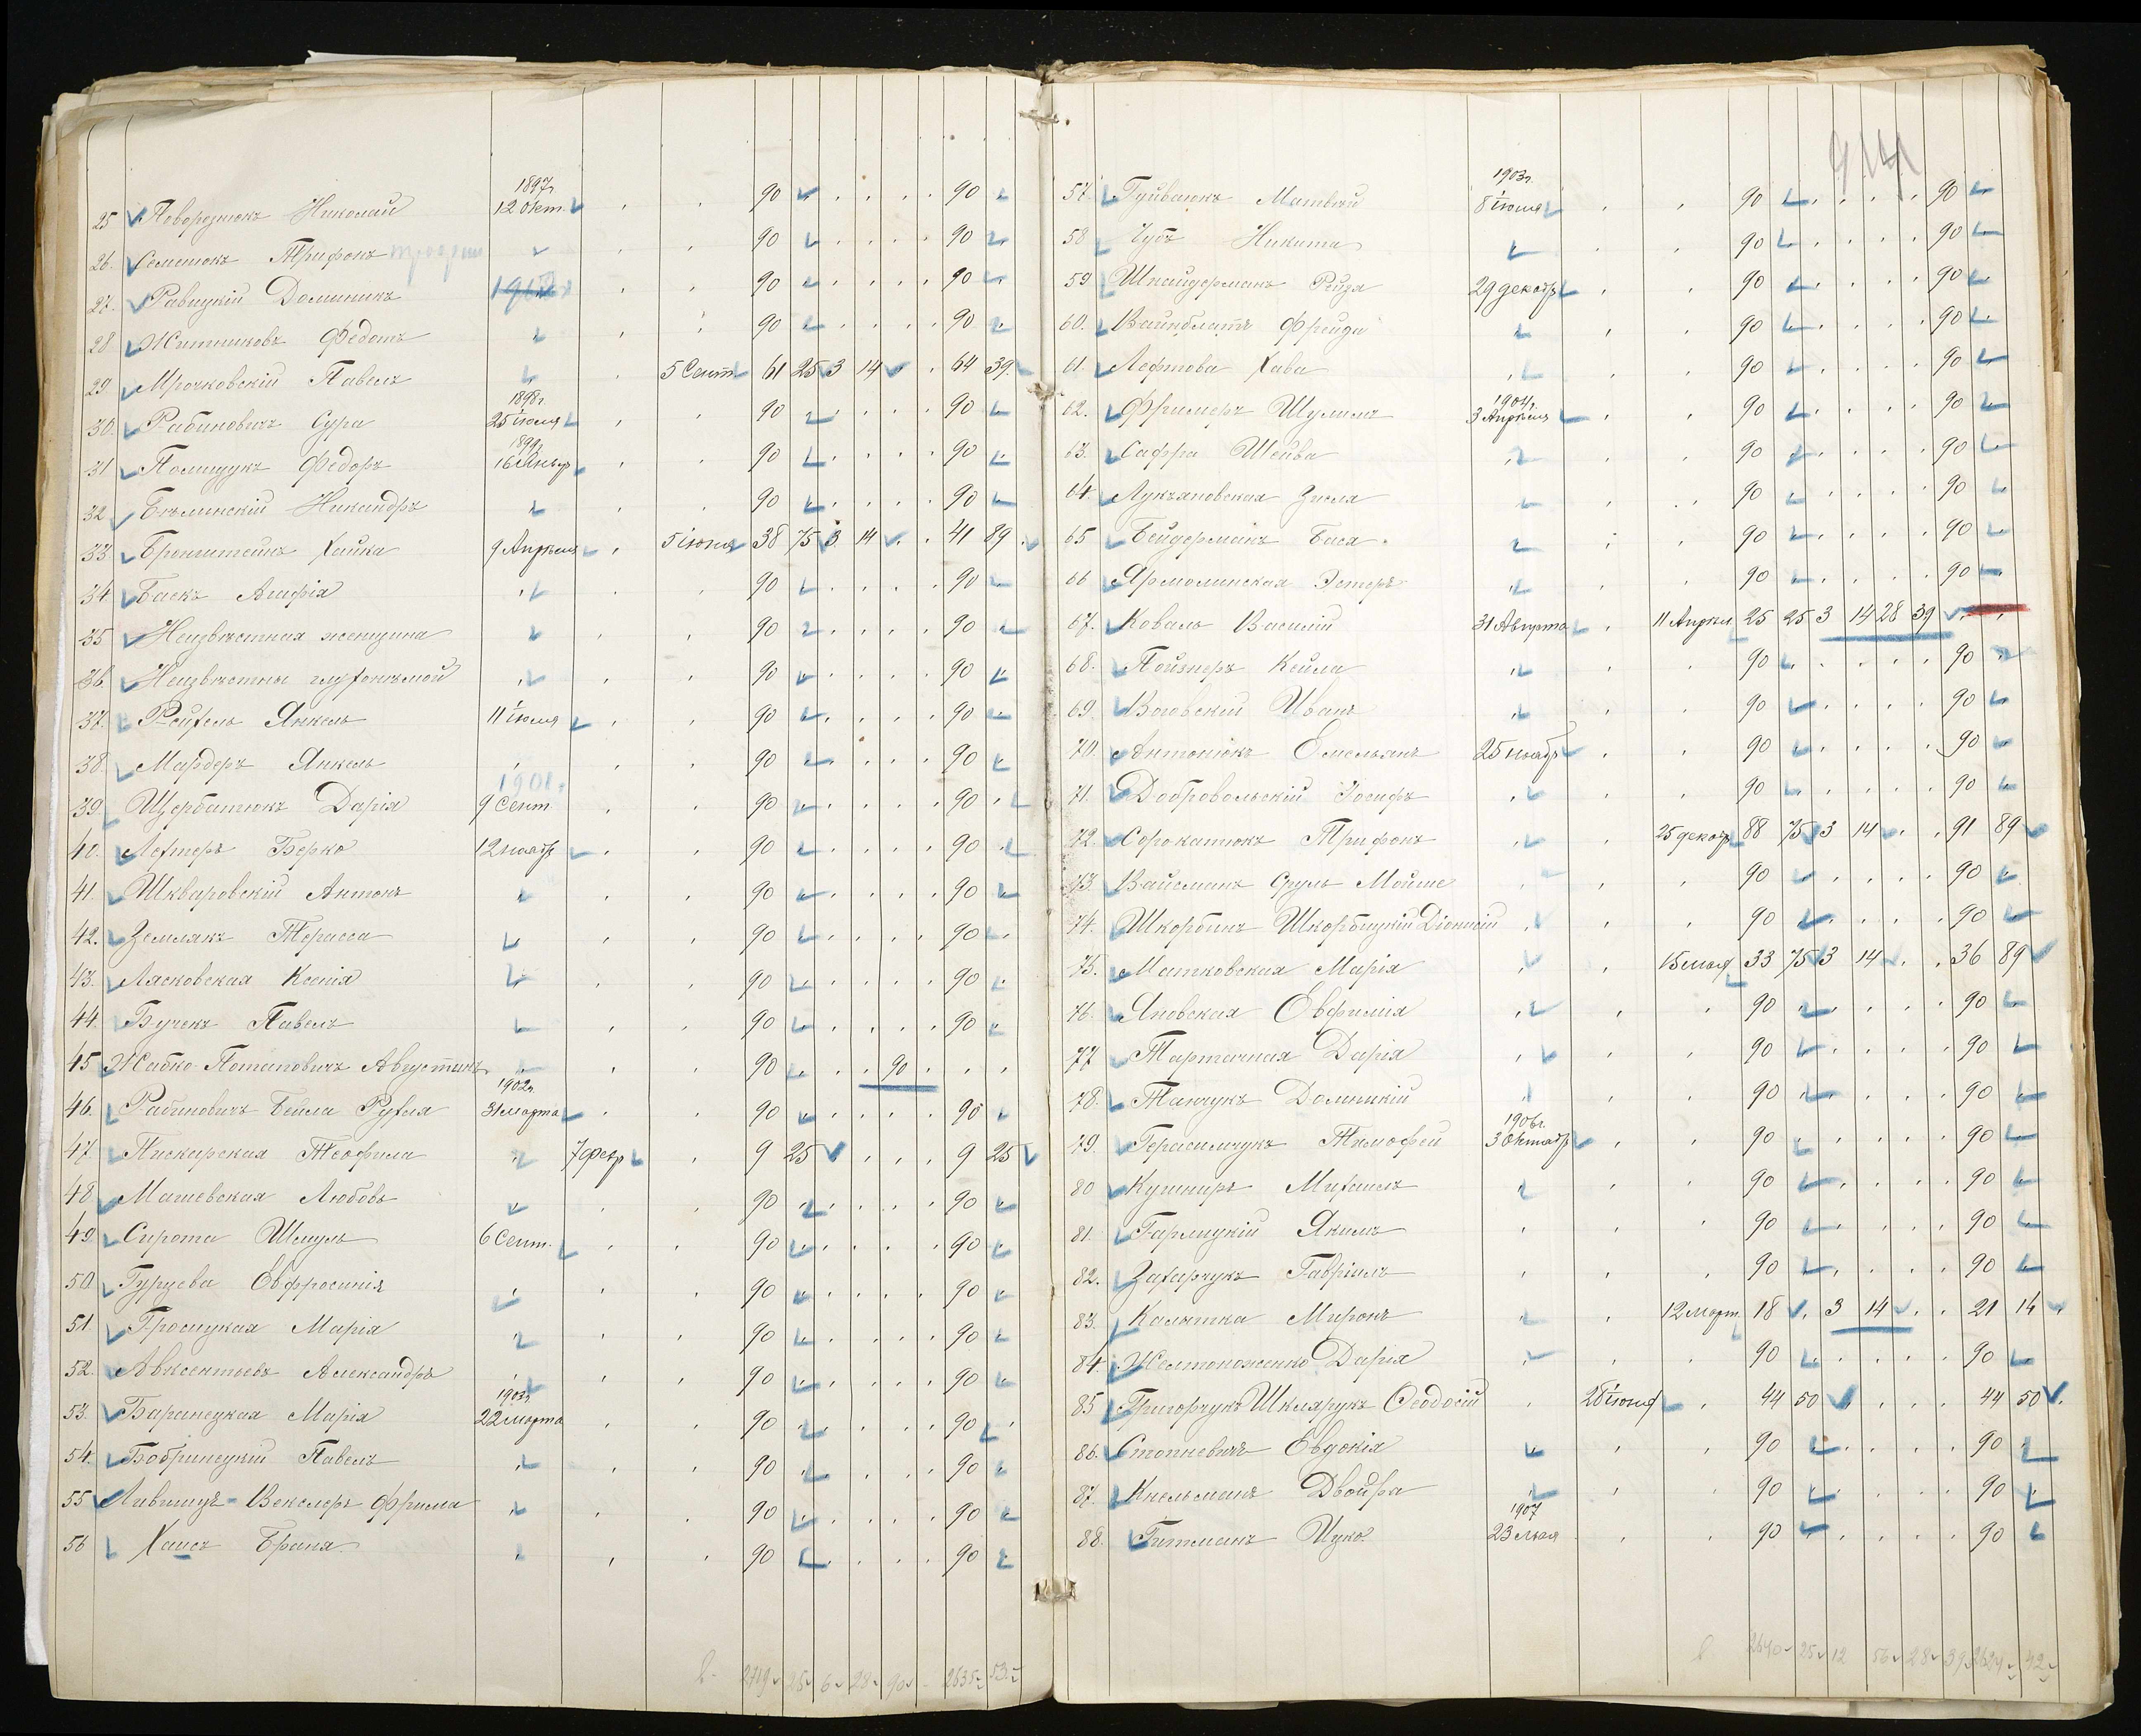 1897г.
25 Поворознюкъ Николай 12 Окт. 90 90
26. Семенюкъ Трифонъ 90 90
27. Равицкій Доминикъ 90 90
28 Житниковъ Федотъ 90 90
29 Мрочковскій Павелъ 5 Сент. 61 25 3 14 64 39
1898г.
30. Рабиновичъ Сура 25 іюля 90 90
1899г.
31 Полищукъ Федоръ 16 Январ 90 90
32 Бѣлинскій Никандръ 90 90
33 Бронштейнъ Хайка 9 Апрѣля 5 іюня 38 75 3 14 41 89
34. Баскъ Агафія 90 90
35 Неизвѣстная женщина 90 90
36. Неизвѣстны глухонѣмой 90 90
37. Рейхель Янкель 11 іюля 90 90
38. Мардеръ Янкель 90 90
1901г.
39. Щербатюкъ Дарія 9 Сент 90 90
40. Лехтеръ Берко 12 ноябр 90 90
41. Шкваровскій Антонъ 90 90
42. Землякъ Терасса 90 90
43. Лясковская Ксенія 90 90
44. Бученъ Павелъ 90 90
45 Жабко-Потаповичъ Августинъ 90 90
1902г.
46. Рабиновичъ Бейла Рухля 31 марта 90 90
47 Пискарская Теофила 7 февр 9 25 9 25
48 Матевская Любовь 90 90
49 Сирота Шмуль 6 Сент. 90 90
50 Гурцева Евфросинія 90 90
51 Просицкая Марія 90 90
52. Авксентьевъ Александръ 90 90
1903г.
53. Баранецкая Марія 22 марта 90 90
54. Бобринецкій Павелъ 90 90
55 Лившицъ-Векслеръ Фрима 90 90
56 Хаисъ Браня 90 90
2719 25 6 28 90 2635 53
914
1903г.
57. Гуйванюкъ Матвѣй 8 іюля 90 90
58 Чубъ Никита 90 90
59 Шнайдерманъ Рейза 29 декабр 90 90
60. Вайнблатъ Фрейда 90 90
61. Лефтова Хава 90 90
1904г.
62. Фримеръ Шулимъ 3 Апрѣля 90 90
63. Сафра Шейва 90 90
64. Лукьяновская Зисля 90 90
65 Бейдерманъ Бася 90 90
66 Ярмолинская Эстеръ 90 90
67. Коваль Василій 31 Августа 11 Апрѣл 25 25 3 14 28 39
68. Пойзнеръ Кейла 90 90
69. Воговскій Иванъ 90 90
70. Антонюкъ Емельянъ 25 ноябр 90 90
71. Добровольскій Іосифъ 90 90
72. Сорокатюкъ Трифонъ 25 декабр 88 75 3 14 91 89
73. Вайсманъ Сруль Мойше 90 90
74. Шкорбинъ Шкорбицкій Діонисій 90 90
75. Матковская Марія 15 мая 33 75 3 14 36 89
76. Яновская Евфимія 90 90
77 Тартачная Дарія 90 90
78. Танчукъ Доминикій 90 90
1906г.
79. Герасимчукъ Тимофей 3 Октябр 90 90
80 Кушниръ Михаилъ 90 90
81. Гарлицкій Якимъ 90 90
82. Захарчукъ Гавріилъ 90 90
83. Калятка Миронъ 12 март 18 3 14 21 14
84. Желтоноженко Дарія 90 90
85 Григорчукъ Шклярукъ Ѳеодосій 28 іюня 44 50 44 50
86. Стопневичъ Евдокія 90 90
87. Кнельманъ Двойра 90 90
1907
88. Гитманъ Ицко 23 мая 90 90
2640 25 12 56 28 39 2624 42